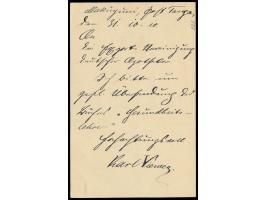 Makuyuni, Post Tanga,
den 31. 10. 10.
An
die Export Vereinigung
deutscher Apotheker
Ich bitte um
gefl. Übersendung des
Buches „Gesundheits-
lehre“
Hochachtungsvoll
Karl